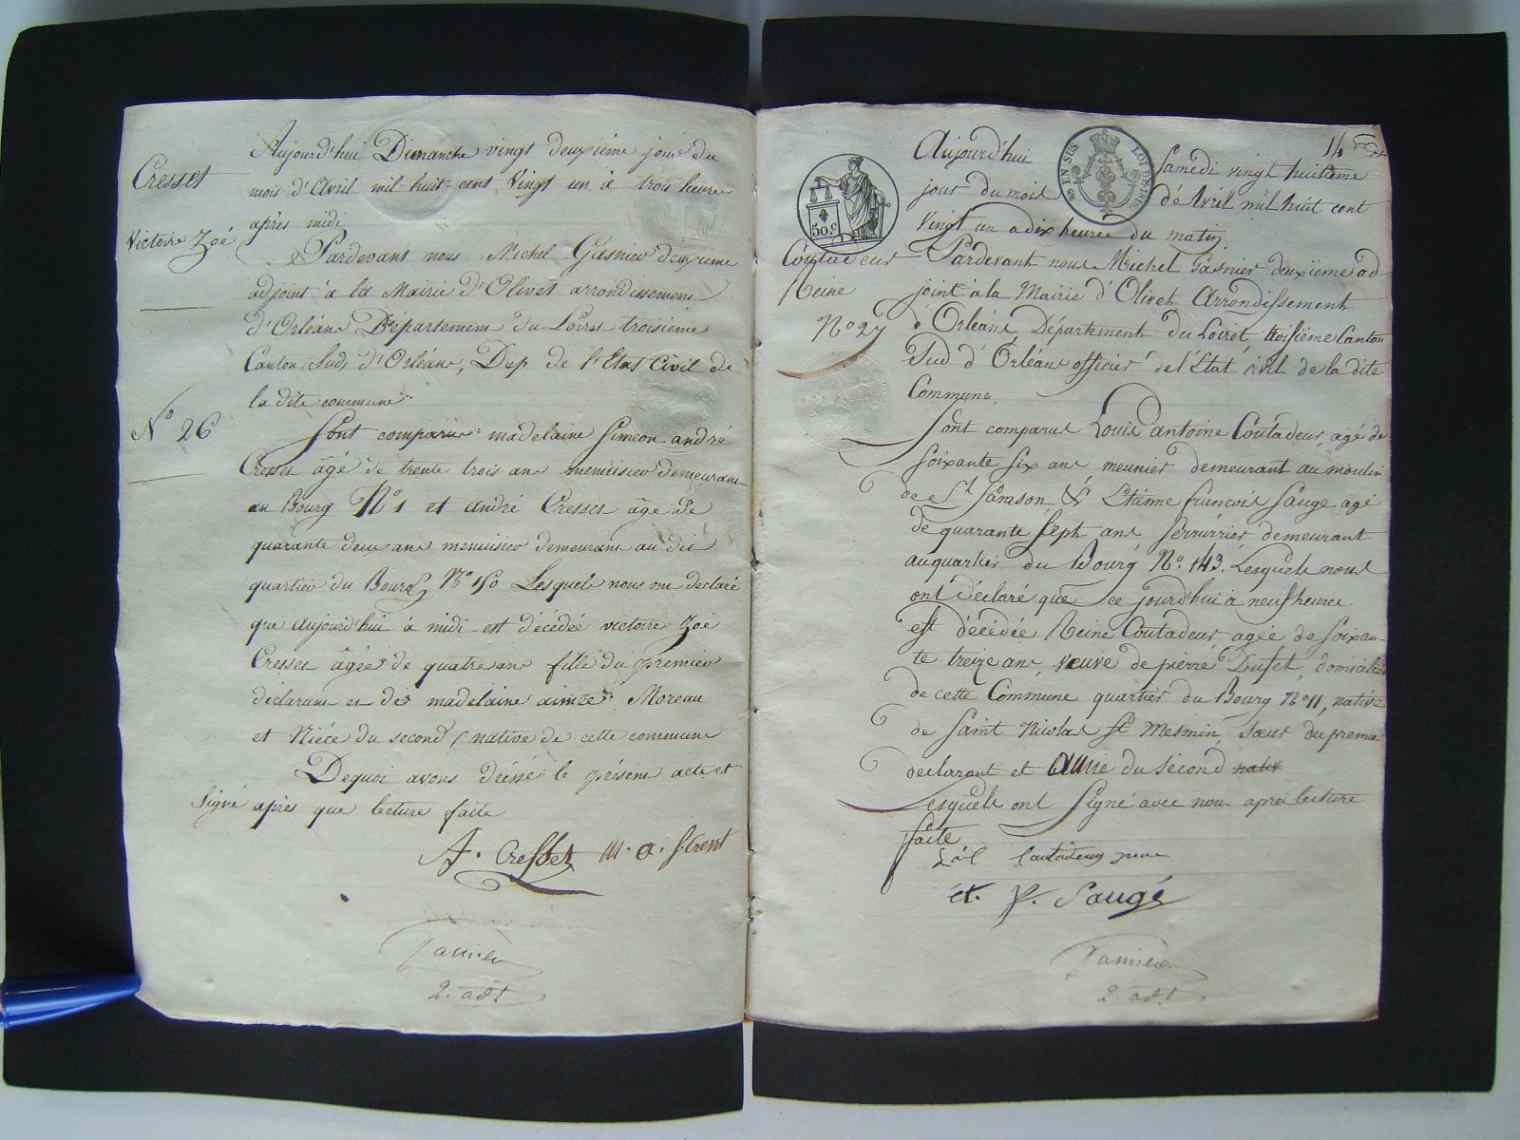 Cresset
Victoire Zoé
N° 26
Aujourd'hui Dimanche vingt deuxième jour du
mois d'Avril mil huit-cent Vingt un à trois heures
après midi
Pardevant nous Michel Gasnier deuxième
adjoint à la Mairie d'Olivet arrondissement
d'Orléans Département du Loiret troisième
Canton Sud d'Orléans, Dep de l'Etat Civil de
la dite commune
Sont comparus madelaine Simeon andré
Cresset âgé de trente trois ans menuisier demeurant
au Bourg N° 1 et andré Cresset âgé de
quarante deux ans menuisier demeurant au dit
quartier du Bourg N° 150 Lesquels nous ont declaré
que aujourd'hui à midi est décédée victoire Zoé
Cresset âgée de quatre ans fille du premier
déclarant et de madelaine aimée Moreau
et Niéce du second, native de cette commune
Dequoi avons dressé le présent acte et
Signé après que lecture faite
A. Cresset m. a.
2. adt
14
EN SUS
50 c
Coutadeur
Reine
N° 27
Aujourd'hui Samedi vingt huitième
jour du mois d'Avril mil huit cent
Vingt un a dix heures du matin.
Pardevant nous Michel Gasnier deuxième ad
joint à la Mairie d'Olivet Arrondissement
d'Orléans Département du Loiret, troisième Canton
Sud d'Orléans officier de l'Etat civil de la dite
Commune.
Sont comparus Louis antoine Coutadeur, agé de
soixante six ans meunier demeurant au moulin
de St Samson, & Etienne françois Saugé agé
de quarante sept ans serrurier demeurant
au quartier du Bourg N° 143. Lesquels nous
ont déclaré que ce jourd'hui à neuf heures
est décédée Reine Coutadeur agée de soixan-
te treize ans veuve de pierre Dufet, domiciliée
de cette Commune quartier du Bourg N° 11, native
de Saint Nicolas St Mesmin, sœur du premier
declarant et amie du second nativ
Lesquels ont Signé avec nous après lecture
faite
L a C Coutadeur
et. f. Saugé
2 adt